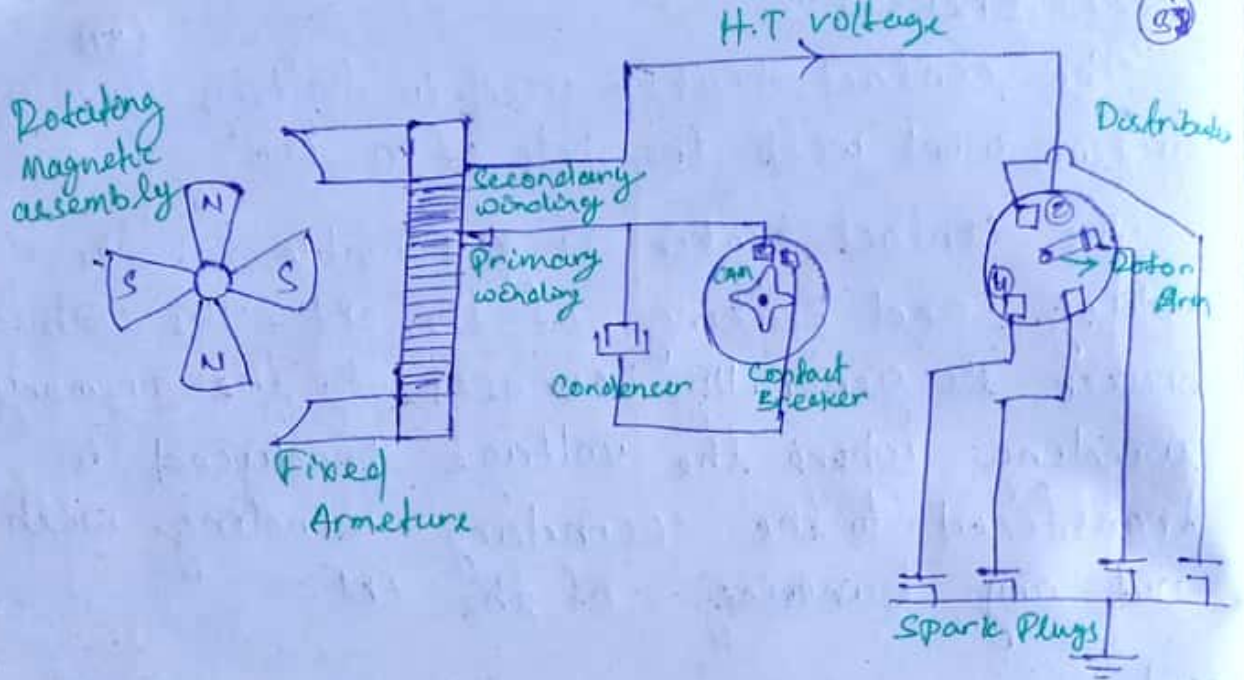 H.T voltage
Rotating
Magnetic
assembly
N
S
S
N
Secondary
winding
Primary
winding
Condencer
CAM
Contact
Breaker
Fixed
Armeture
Distributer
Rotor
Arm
Spark Plugs